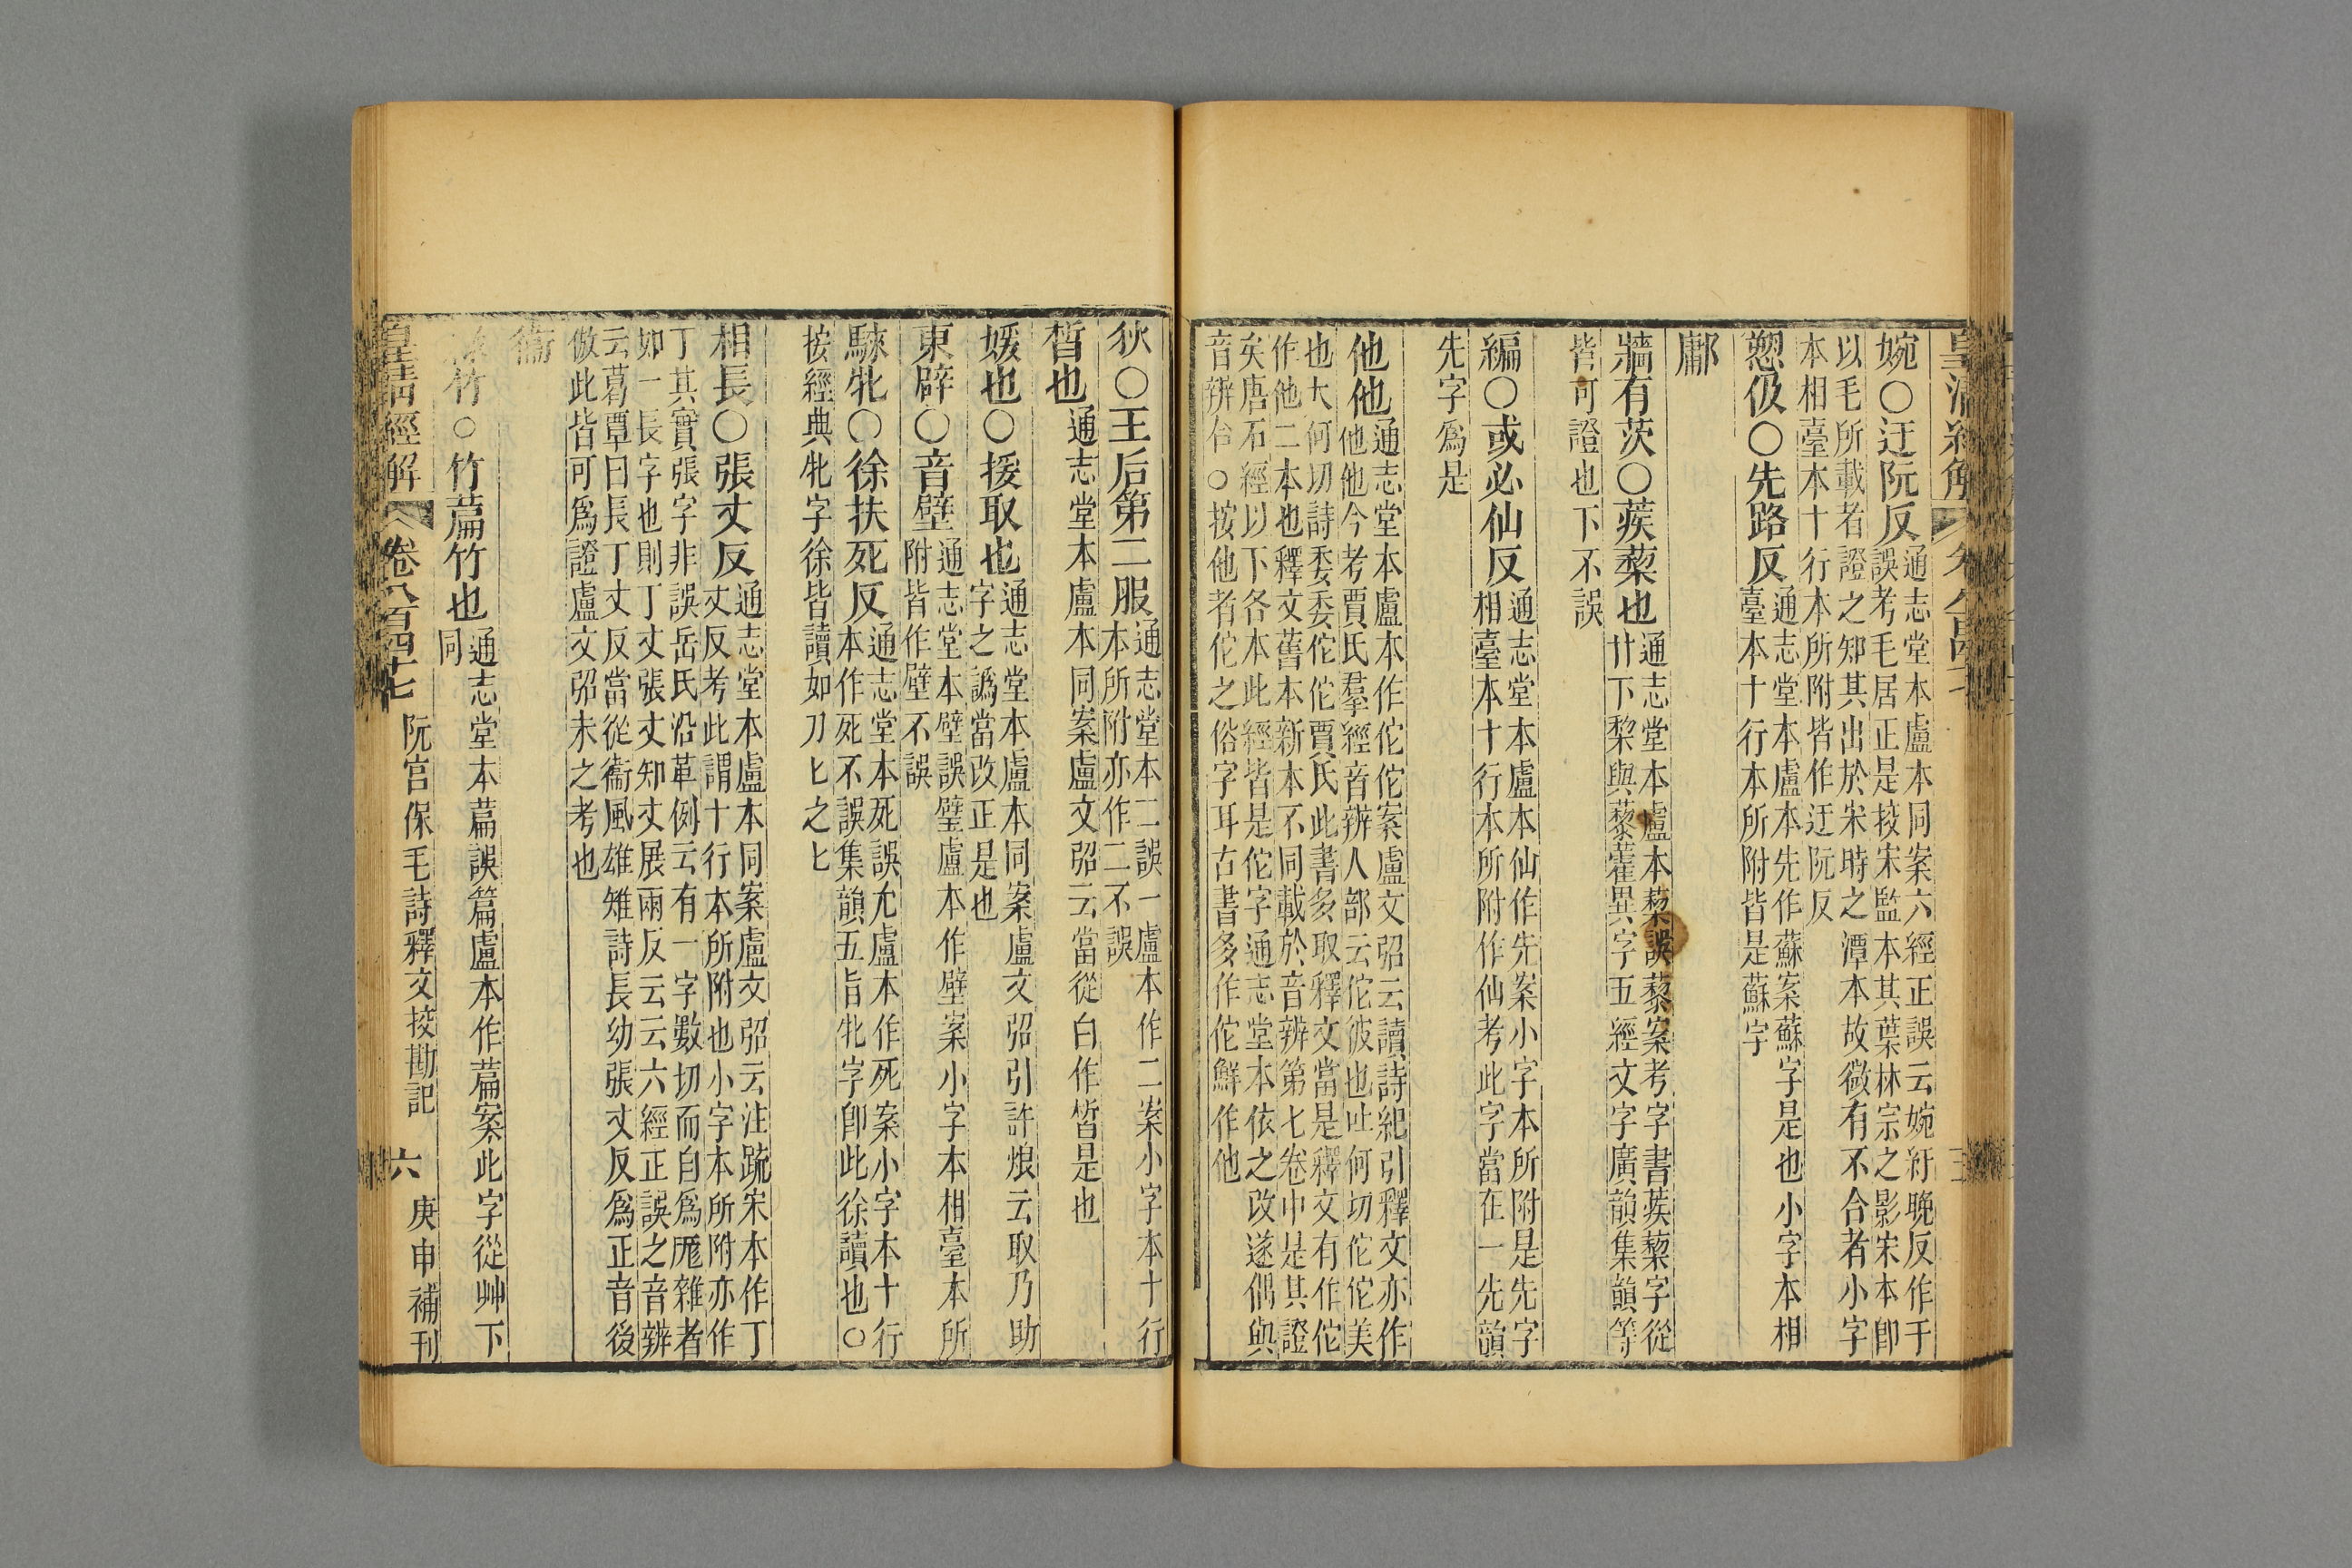 皇清經解
婉○迂阮反通志堂本盧本同案六經正誤云婉紆晚反作于
誤考毛居正是挍宋監本其葉林宗之影宋本卽
以毛所載者證之知其出於宋時之潭本故㣲有不合者小字
本相臺本十行本所附皆作迂阮反
愬伋○先路反通志堂本盧本先作蘇案蘇字是也小字本相
臺本十行本所附皆是蘇字
鄘
牆有茨○蒺蔾也通志堂本盧本蔾誤藜案考字書蒺蔾字從
廿下棃與藜藿異字五經文字廣韻集韻等
皆可證也下不誤
編○或必仙反通志堂本盧本仙作先案小字本所附是先字
相臺本十行本所附作仙考此字當在一先韻
先字爲是
他他通志堂本盧本作佗佗案盧文弨云讀詩紀引釋文亦作
他他今考賈氏羣經音辨人部云佗彼也吐何切佗佗美
也大何切詩委委佗佗賈氏此書多取釋文當是釋文有作佗
作他二本也釋文舊本新本不同載於音辨第七卷中是其證
矣唐石經以下各本此經皆是佗字通志堂本依之改遂偶與
音辨合○按他者佗之俗字耳古書多作佗鮮作他
狄○王后第二服通志堂本二誤一盧本作二案小字本十行
本所附亦作二不誤
晳也通志堂本盧本同案盧文弨云當從白作皙是也
媛也○援取也通志堂本盧本同案盧文弨引許烺云取乃助
字之譌當改正是也
東辟○音壁通志堂本壁誤璧盧本作壁案小字本相臺本所
附皆作壁不誤
騋牝○徐扶死反通志堂本死誤允盧本作死案小字本十行
本作死不誤集韻五旨牝字卽此徐讀也○
按經典牝字徐皆讀如刀匕之匕
相長○張丈反通志堂本盧本同案盧文弨云注疏宋本作丁
丈反考此謂十行本所附也小字本所附亦作
丁其實張字非誤岳氏沿革例云有一字數切而自爲厖雜者
如一長字也則丁丈張丈知丈展兩反云云六經正誤之音辨
云葛覃曰長丁丈反當從衞風雄雉詩長幼張丈反爲正音後
倣此皆可爲證盧文弨未之考也
衞
菉竹○竹萹竹也通志堂本萹誤篇盧本作萹案此字從艸下
同
皇清經解　卷八百四十七　阮宮保毛詩釋文挍勘記　六　庚申補刊